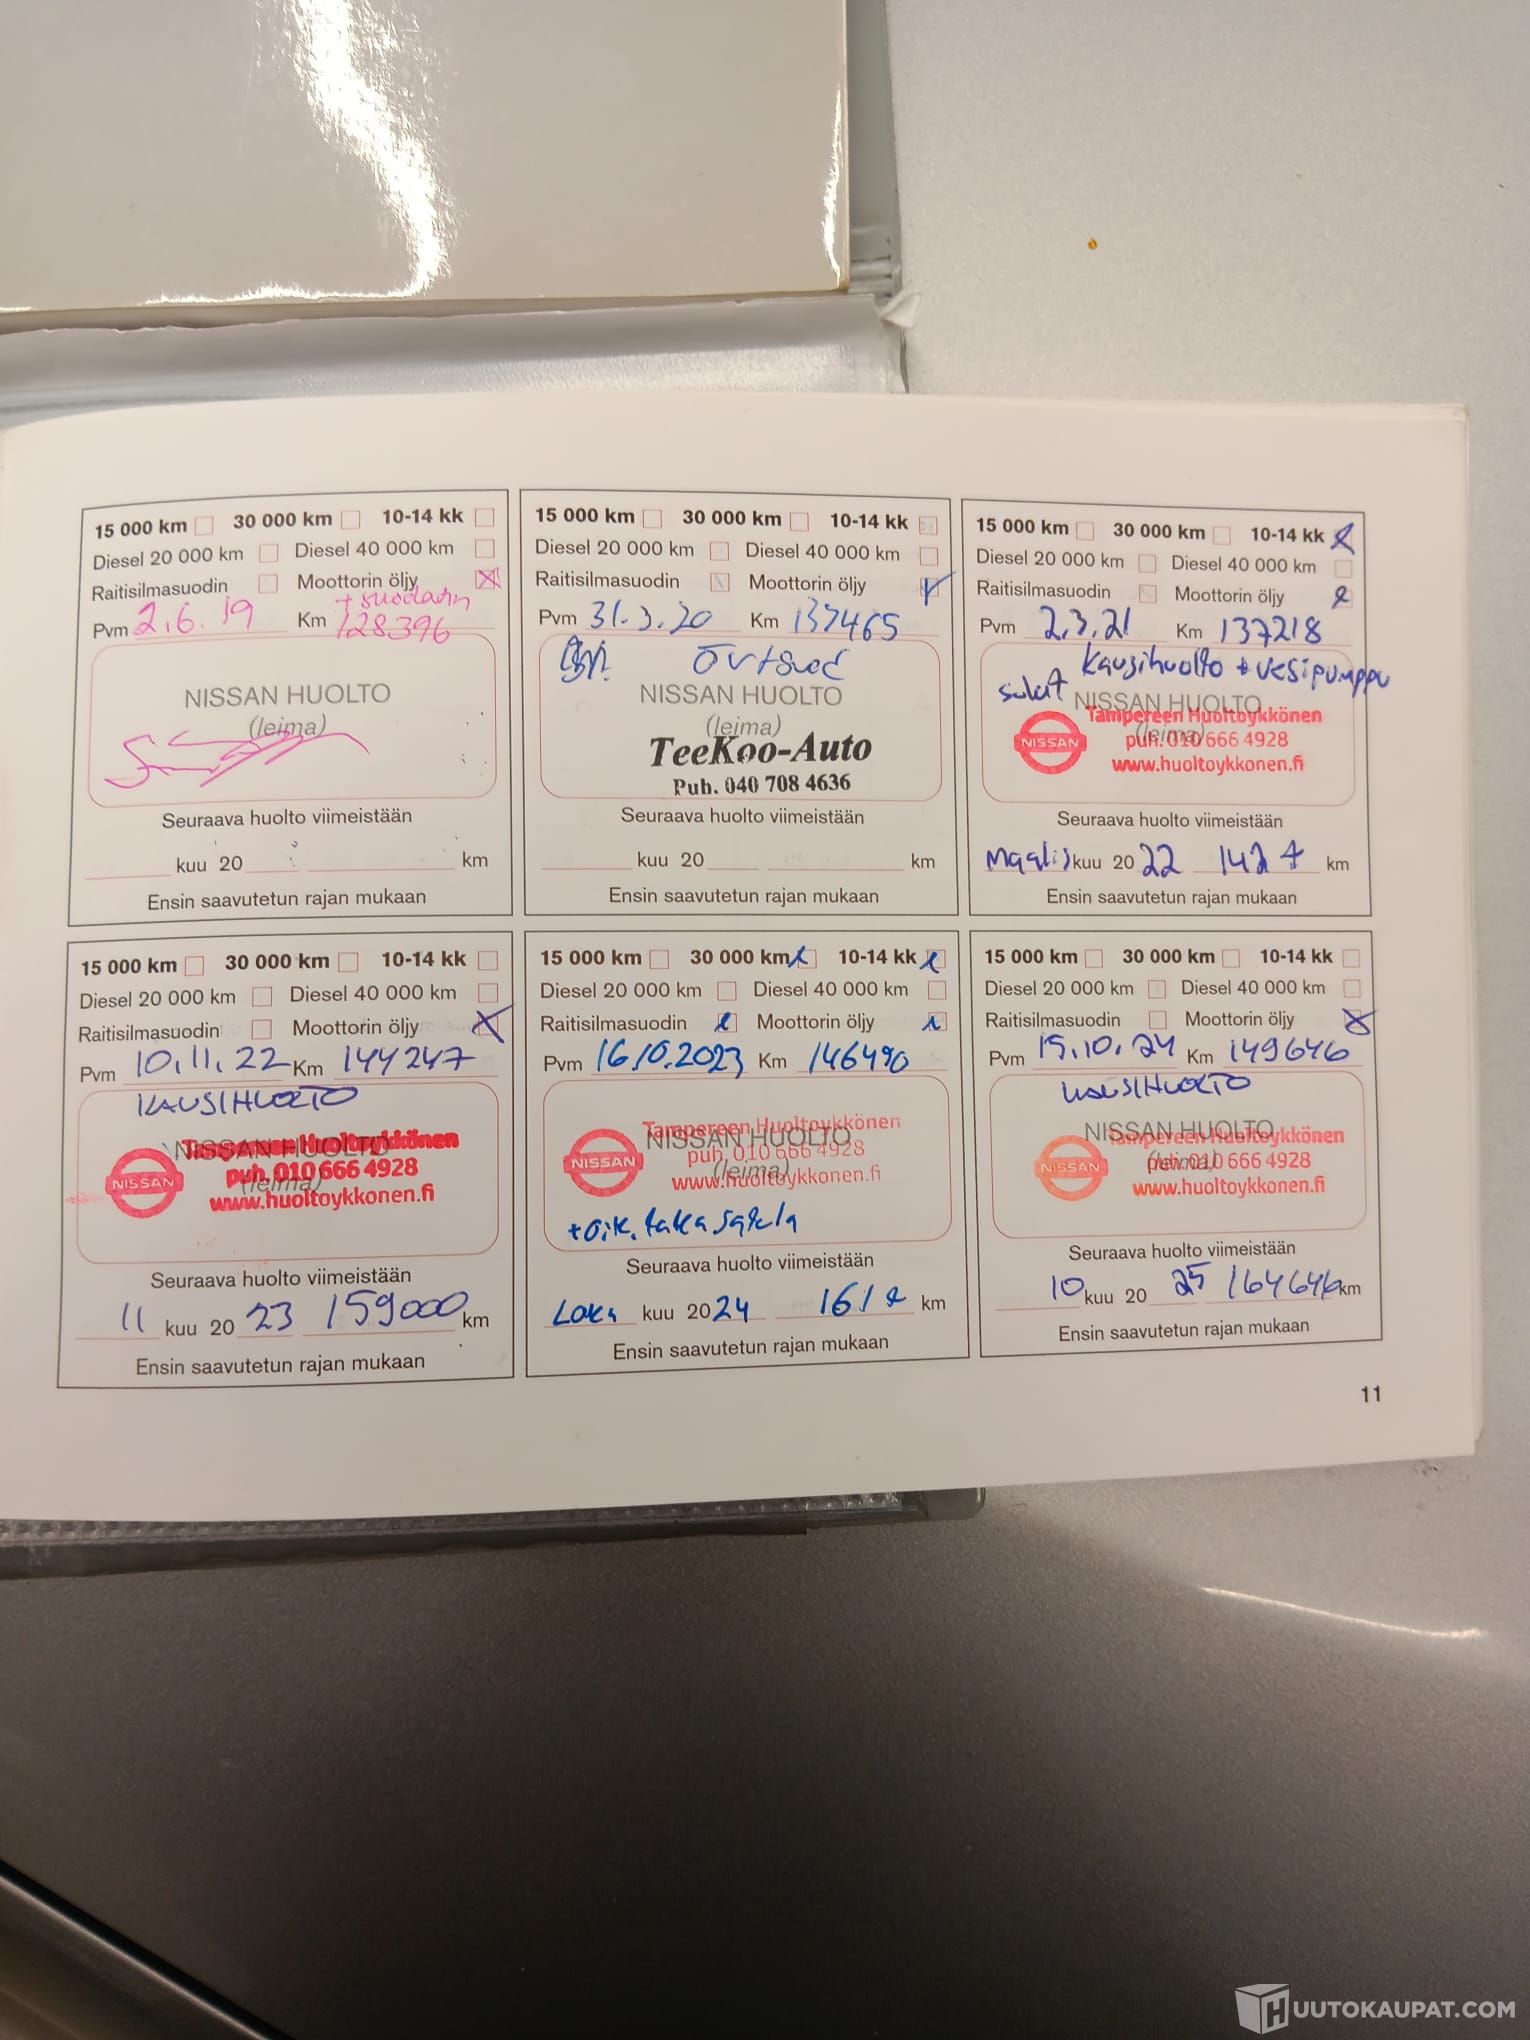 15 000 km 30 000 km 10-14 kk
Diesel 20 000 km Diesel 40 000 km
Raitisilmasuodin Moottorin öljy
+ suodatin
Pvm 2.6.19 Km 128396
NISSAN HUOLTO
(leima)
Seuraava huolto viimeistään
kuu 20 km
Ensin saavutetun rajan mukaan
15 000 km 30 000 km 10-14 kk
Diesel 20 000 km Diesel 40 000 km
Raitisilmasuodin Moottorin öljy
Pvm 31.3.20 Km 137465
NISSAN HUOLTO
(leima)
TeeKoo-Auto
Puh. 040 708 4636
Seuraava huolto viimeistään
kuu 20 km
Ensin saavutetun rajan mukaan
15 000 km 30 000 km 10-14 kk
Diesel 20 000 km Diesel 40 000 km
Raitisilmasuodin Moottorin öljy
Pvm 2.3.21 Km 137218
Kausihuolto + vesipumppu
NISSAN HUOLTO
(leima)
NISSAN
Tampereen Huoltoykkönen
puh. 010 666 4928
www.huoltoykkonen.fi
Seuraava huolto viimeistään
Maalis kuu 20 22 142 t km
Ensin saavutetun rajan mukaan
15 000 km 30 000 km 10-14 kk
Diesel 20 000 km Diesel 40 000 km
Raitisilmasuodin Moottorin öljy
Pvm 10.11.22 Km 144247
KAUSIHUOLTO
NISSAN HUOLTO
(leima)
NISSAN
Tampereen Huoltoykkönen
puh. 010 666 4928
www.huoltoykkonen.fi
Seuraava huolto viimeistään
11 kuu 20 23 159000 km
Ensin saavutetun rajan mukaan
15 000 km 30 000 km 10-14 kk
Diesel 20 000 km Diesel 40 000 km
Raitisilmasuodin Moottorin öljy
Pvm 16.10.2023 Km 146490
NISSAN HUOLTO
(leima)
NISSAN
Tampereen Huoltoykkönen
puh. 010 666 4928
www.huoltoykkonen.fi
+ oik. taka satula
Seuraava huolto viimeistään
Loka kuu 20 24 161 km
Ensin saavutetun rajan mukaan
15 000 km 30 000 km 10-14 kk
Diesel 20 000 km Diesel 40 000 km
Raitisilmasuodin Moottorin öljy
Pvm 15.10.24 Km 149646
KAUSIHUOLTO
NISSAN HUOLTO
(leima)
NISSAN
Tampereen Huoltoykkönen
puh. 010 666 4928
www.huoltoykkonen.fi
Seuraava huolto viimeistään
10 kuu 20 25 164646 km
Ensin saavutetun rajan mukaan
11
HUUTOKAUPAT.COM